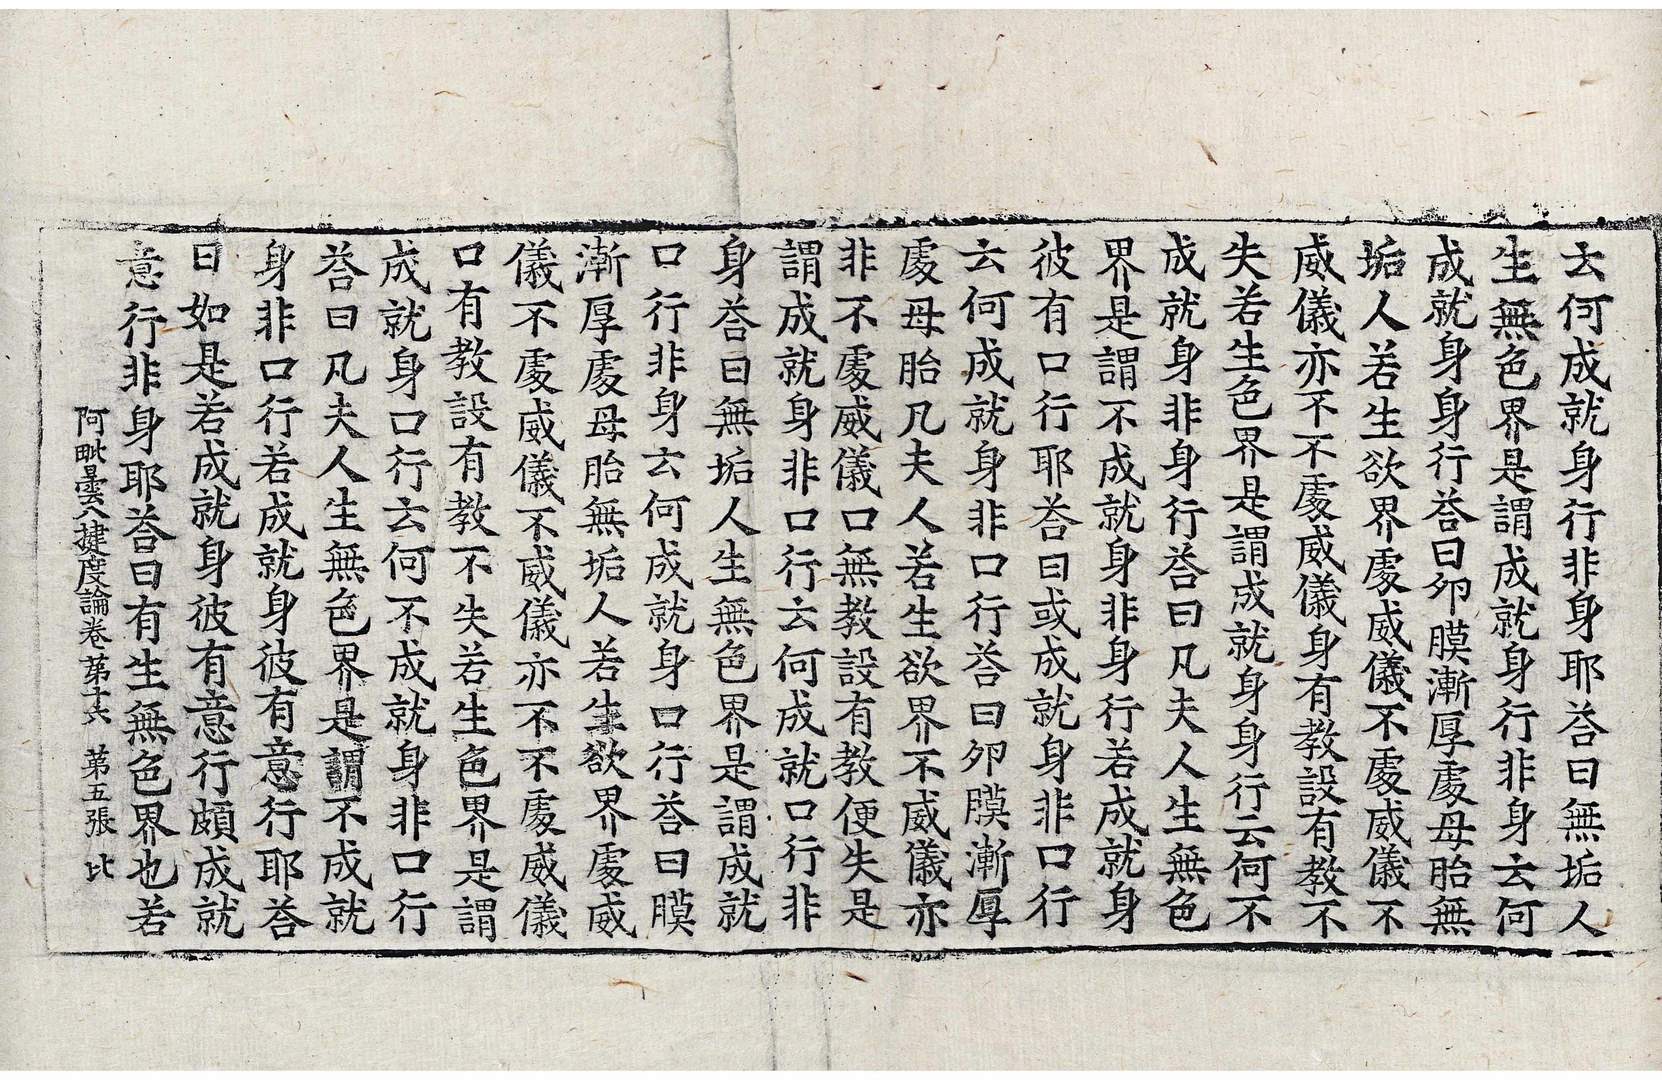 云何成就身行非身耶荅曰無垢人
生無色界是謂成就身行非身云何
成就身身行荅曰夘膜漸厚處母胎無
垢人若生欲界處威儀不處威儀不
威儀亦不不處威儀身有教設有教不
失若生色界是謂成就身身行云何不
成就身非身行荅曰凡夫人生無色
界是謂不成就身非身行若成就身
彼有口行耶荅曰或成就身非口行
云何成就身非口行荅曰夘膜漸厚
處母胎凡夫人若生欲界不威儀亦
非不處威儀口無教設有教便失是
謂成就身非口行云何成就口行非
身荅曰無垢人生無色界是謂成就
口行非身云何成就身口行荅曰膜
漸厚處母胎無垢人若生欲界處威
儀不處威儀不威儀亦不不處威儀
口有教設有教不失若生色界是謂
成就身口行云何不成就身非口行
荅曰凡夫人生無色界是謂不成就
身非口行若成就身彼有意行耶荅
曰如是若成就身彼有意行頗成就
意行非身耶荅曰有生無色界也若
阿毗曇八揵度論卷第十六　第五張　比